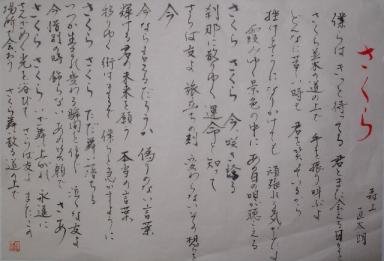 さくら
森山
直太朗
僕らはきっと待ってる 君とまた会える日々を
さくら並木の道の上で 手を振り叫ぶよ
どんなに苦しい時も 君は笑っているから
挫けそうになりかけても 頑張れる気がしたよ
霞みゆく景色の中に あの日の唄が聴こえる
さくら さくら 今、咲き誇る
刹那に散りゆく運命と知って
さらば友よ 旅立ちの刻 変わらないその想いを
今
今なら言えるだろうか 偽りのない言葉
輝ける君の未来を願う 本当の言葉
移りゆく街はまるで 僕らを急かすように
さくら さくら ただ舞い落ちる
いつか生まれ変わる瞬間を信じ 泣くな友よ
今惜別の時 飾らないあの笑顔で さあ
さくら さくら いざ舞い上がれ 永遠に
さんざめく光を浴びて さらば友よ またこの
場所で会おう さくら舞い散る道の上で